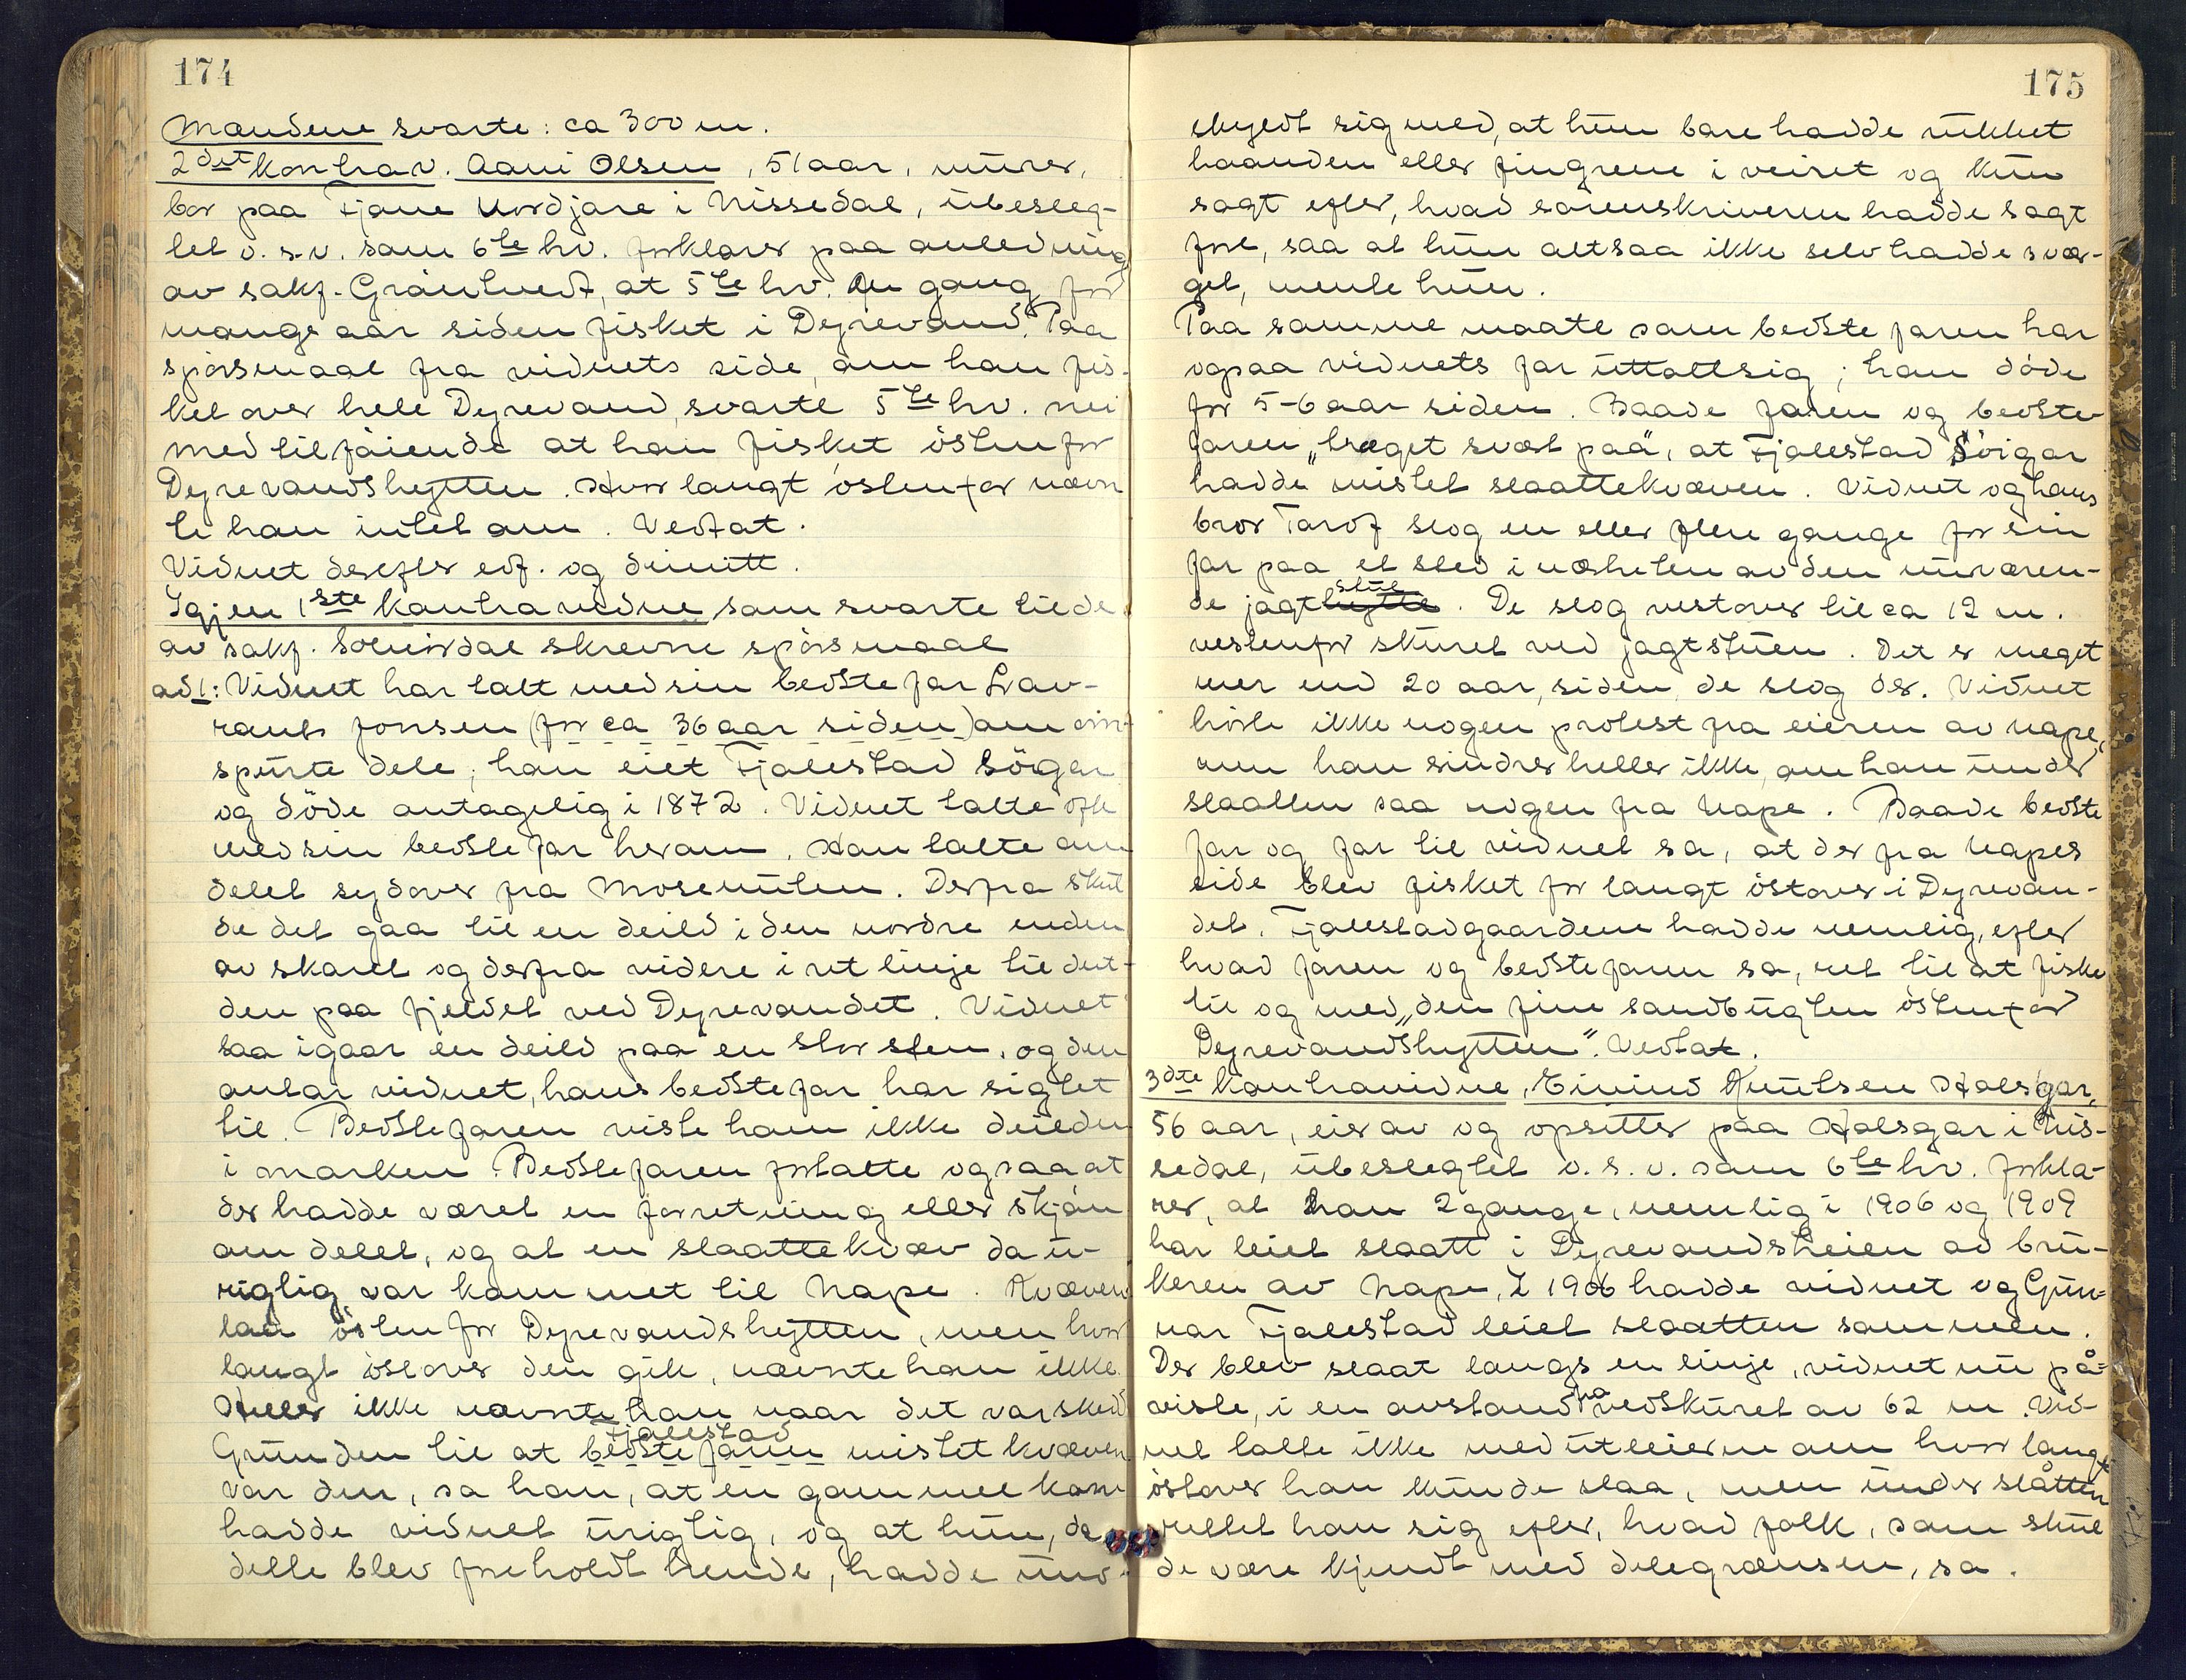 174
Mændene svarte: ca 300 m.
2det kontrav. Aani Olsen, 51 aar, murer,
bor paa Fjone Nordjore i Nissedal, ubesleg-
tet o.s.v. som 6te hv. forklarer paa anledning
av sakf. Grántvedt, at 5te hv. en gang for
mange aar siden fisket i Dyrevand. Paa
spörsmaal fra vidnets side, om han fis-
ket over hele Dyrevand, svarte 5te hv. nei
med tilföiende at han fisket östenfor
Dyrevandshytten. Hvor langt östenfor nævn
te han intet om. Vedtat.
Vidnet derefter edf. og dimitt.
Igjen 1ste kontravidne som svarte til de
av sakf. Solumdal skrevne spörsmaal
ad 1: Vidnet har talt med sin bedstefar Lav-
rants Jonsen (for ca 36 aar siden) om om-
spurte dele; han eiet Fjalestad Söigar
og döde antagelig i 1872. Vidnet talte ofte
med sin bedstefar herom. Han talte om
delet sydover fra Mosenuten. Derfra skul
de det gaa til en deild i den nordre enden
av skaret og derfra videre i ret linje til dul-
den paa fjeldet ved Dyrevandet. Vidnet
saa igaar en deild paa en stor sten, og den
antar vidnet, hans bedstefar har sigtet
til. Bedstefaren viste ham ikke deilden
i marken. Bedstefaren fortalte ogsaa, at
der hadde været en forretning eller skjön
om delet, og at en slaattekvæv da u-
rigtig var kommet til Nape. Kvæven
laa östenfor Dyrevandshytten, men hvor
langt östover den gik, nævnte han ikke.
Heller ikke nævnte han naar det var skedd
Fjalestad
Grunden til at bedstefaren mistet kvæven
var den, sa han, at en gammel kone
hadde vidnet urigtig, og at hun, da
dette blev foreholdt hende, hadde und-
175
skyldt sig med, at hun bare hadde rukket
haanden eller fingrene i veiret og kun
sagt efter, hvad sorenskriveren hadde sagt
fore, saa at hun altsaa ikke selv hadde svær-
get, mente hun.
Paa samme maate som bedstefaren har
ogsaa vidnets far uttalt sig; han döde
for 5-6 aar siden. Baade faren og bedste-
faren "træget svært paa", at Fjalestad Söigar
hadde mistet slaattekvæven. Vidnet og hans
bror Tarof slog en eller flere gange for sin
far paa et sted i nærheten av den nuværen-
stue
de jagthytte. De slog vestover til ca 12 m.
vestenfor skuret ved jagtstuen. Det er meget
mer end 20 aar, siden de slog der. Vidnet
hörte ikke nogen protest fra eieren av Nape,
men han mindes heller ikke, om han under
slaatten saa nogen fra Nape. Baade bedste
far og far til vidnet sa, at der fra Napes
side blev fisket for langt östover i Dyrevan-
det. Fjalestadgaardene hadde nemlig, efter
hvad faren og bedstefaren sa, ret til at fiske
til og med "den fine sandbugten östenfor
Dyrevandshytten". Vedtat.
3dte kontravidne, Eivind Knutsen Halsgar,
56 aar, eier av og opsitter paa Halsgar i Nis-
sedal, ubeslegtet o.s.v. som 6te hv. forkla-
rer, at han 2 gange, nemlig i 1906 og 1909
har leiet slaatt i Dyrevandsheien av bru-
keren av Nape. I 1906 hadde vidnet og Gun-
nar Fjalestad leiet slaatten sammen.
Der blev slaat langs en linje, vidnet nu på-
fra
viste, i en avstand vedskuret av 62 m. Vid-
net talte ikke med utleieren om hvor langt
östover han kunde slaa, men under slåtten
rettet han sig efter, hvad folk, som skul
de være kjendt med delegrænsen, sa.